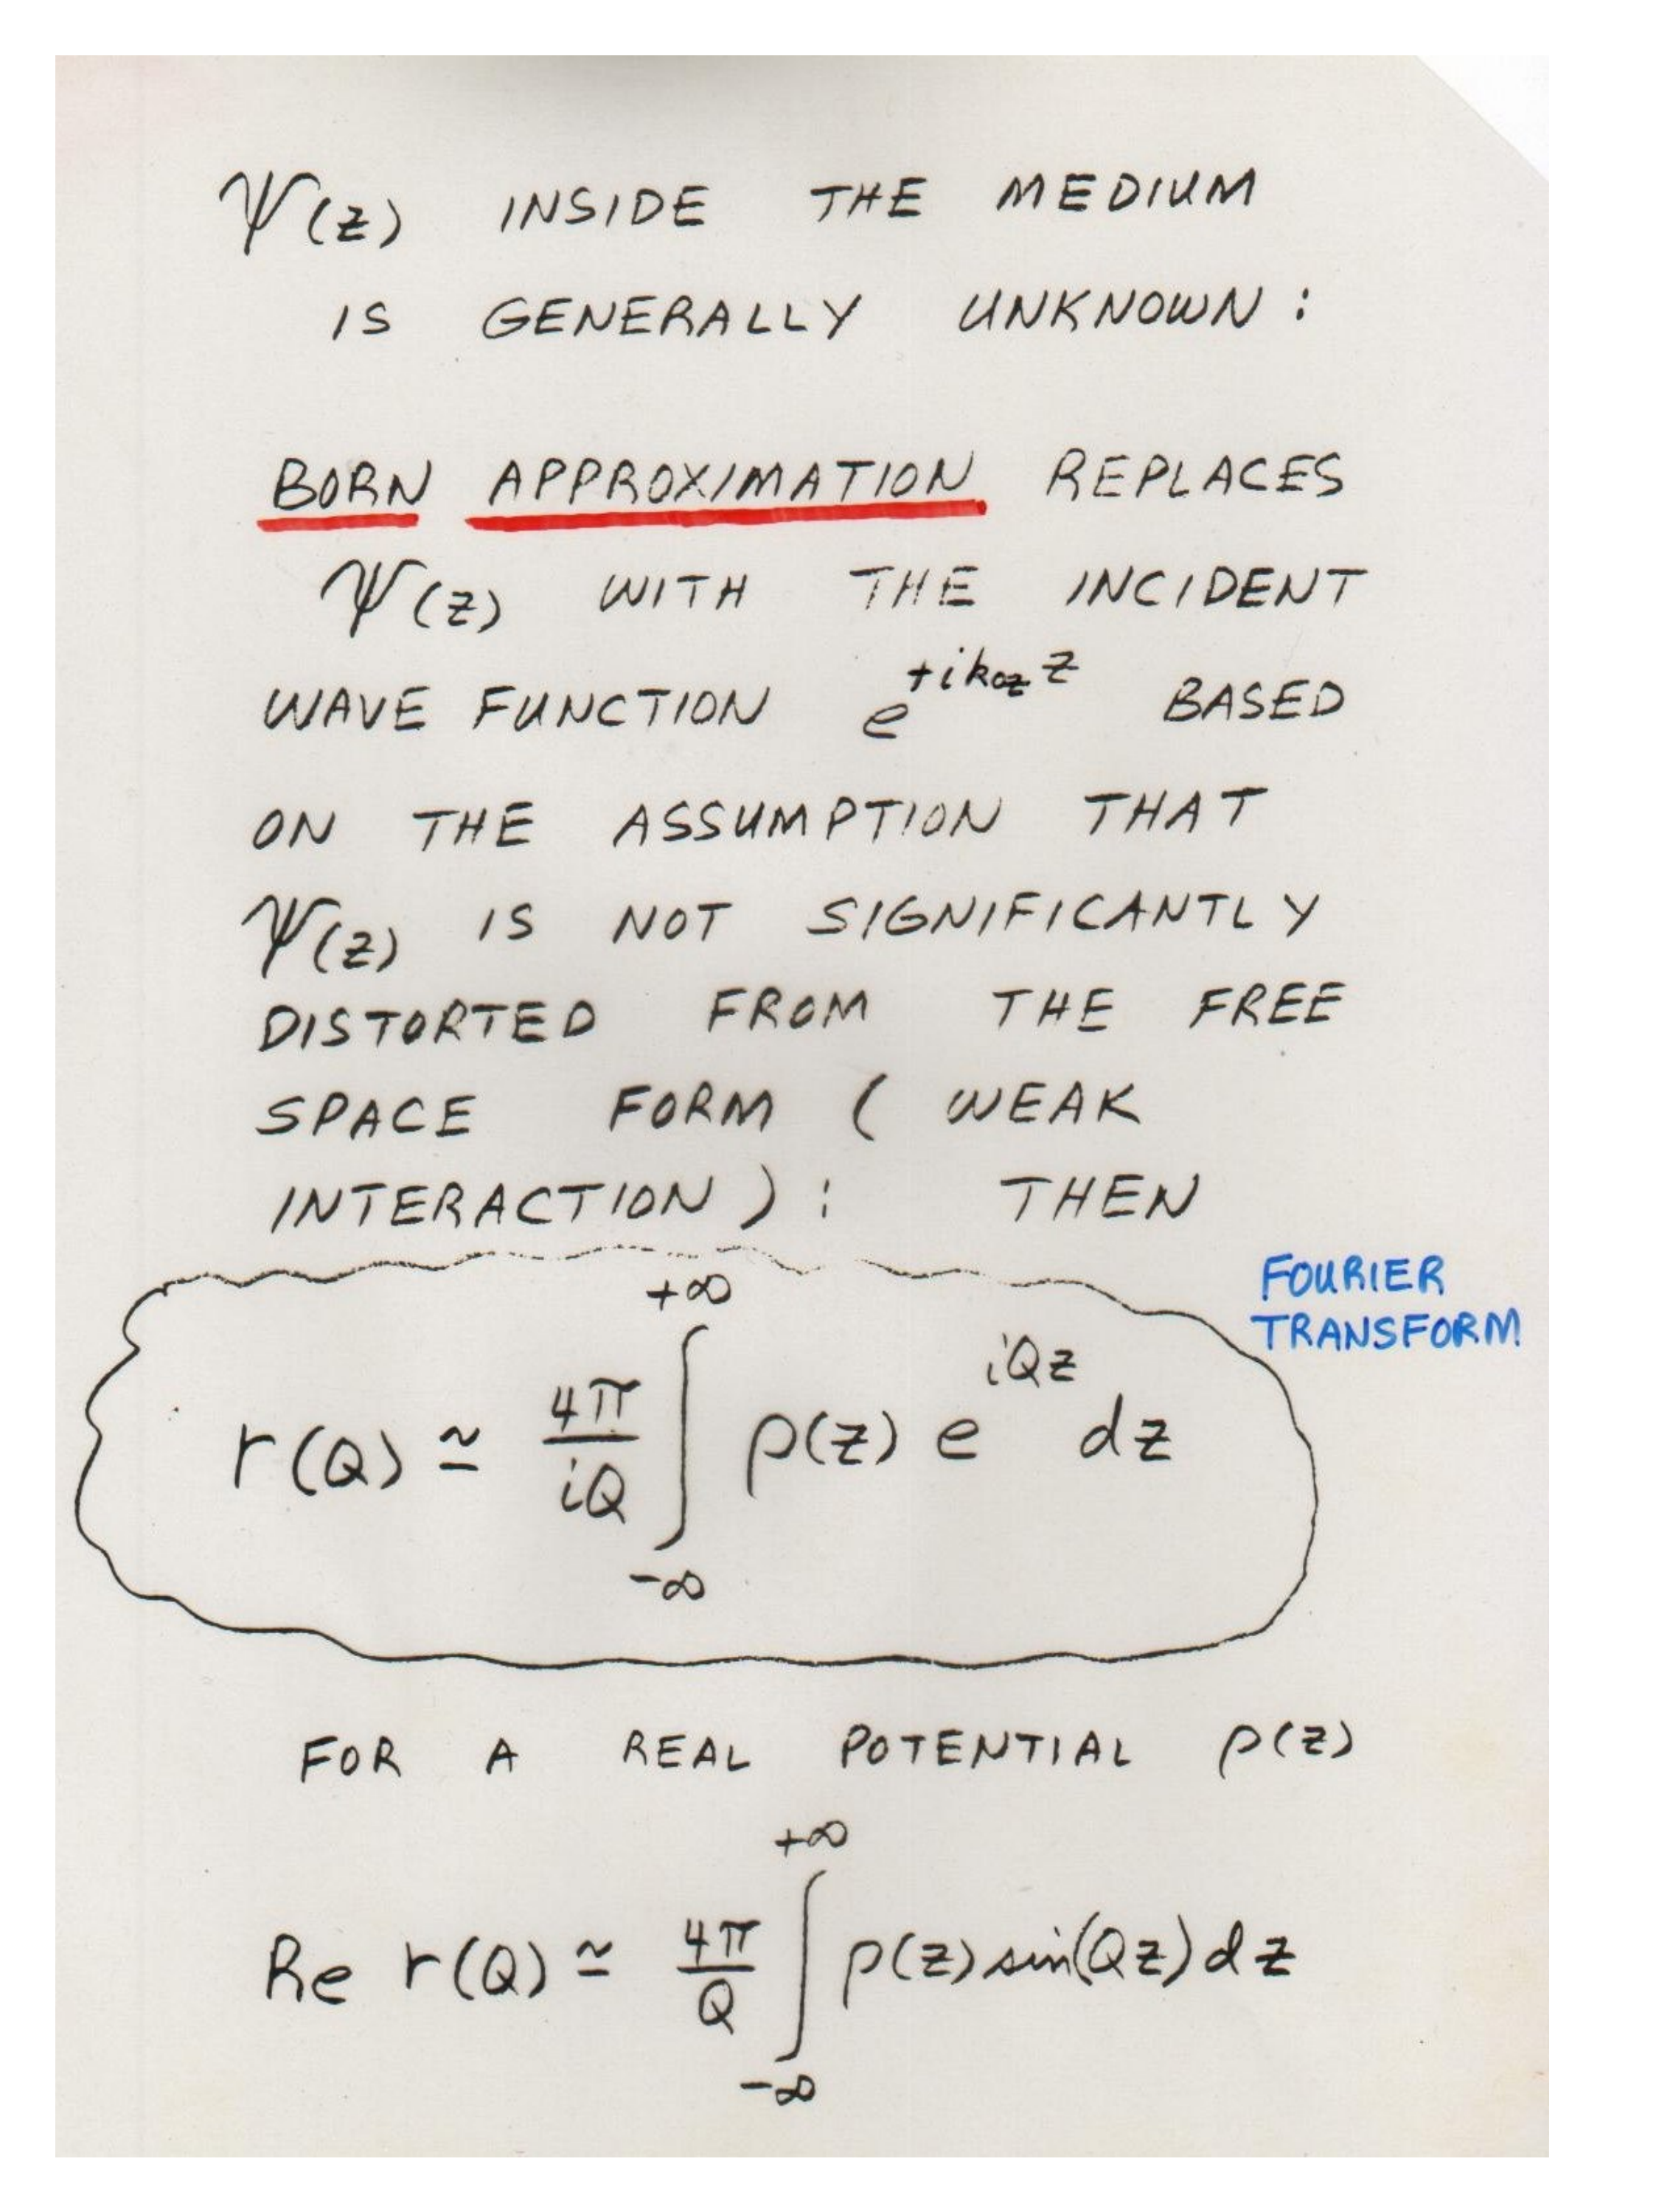 Ψ(z) INSIDE THE MEDIUM
IS GENERALLY UNKNOWN:
BORN APPROXIMATION REPLACES
Ψ(z) WITH THE INCIDENT
WAVE FUNCTION e^{+ik_{0z}z} BASED
ON THE ASSUMPTION THAT
Ψ(z) IS NOT SIGNIFICANTLY
DISTORTED FROM THE FREE
SPACE FORM (WEAK
INTERACTION): THEN
FOURIER
TRANSFORM
r(Q) ≃ \frac{4π}{iQ} ∫_{-∞}^{+∞} ρ(z) e^{iQz} dz
FOR A REAL POTENTIAL ρ(z)
Re r(Q) ≃ \frac{4π}{Q} ∫_{-∞}^{+∞} ρ(z) sin(Qz) dz